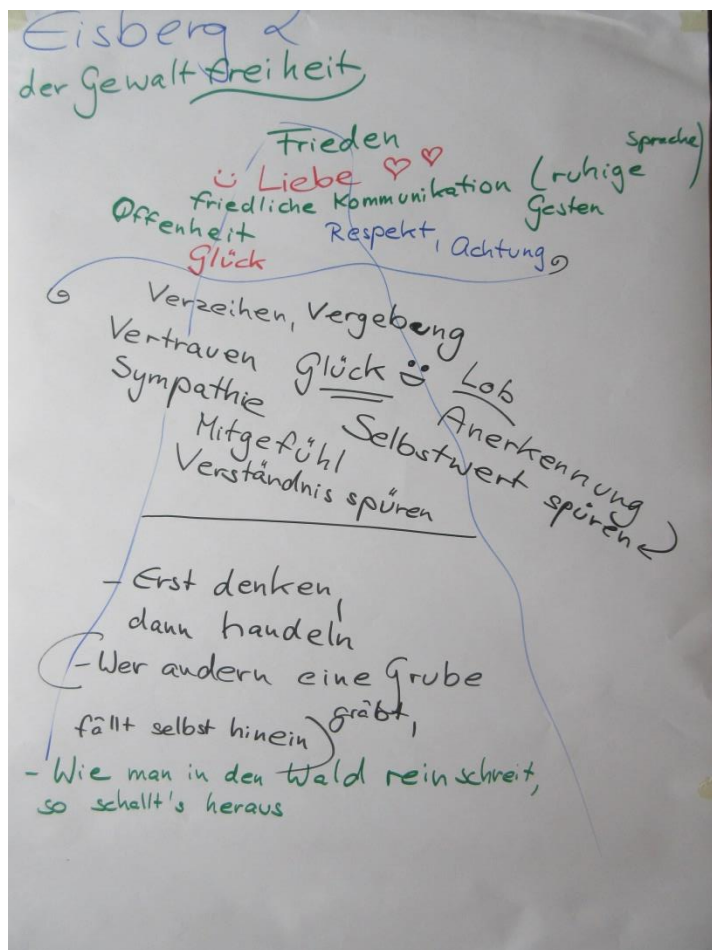 Eisberg 2
der Gewaltfreiheit
Frieden
Liebe
friedliche Kommunikation (ruhige Sprache)
Gesten
Offenheit
Respekt, Achtung
Glück
Verzeihen, Vergebung
Vertrauen
Glück
Lob
Sympathie
Anerkennung
Mitgefühl
Selbstwert spüren
Verständnis spüren
- Erst denken,
dann handeln
(- Wer andern eine Grube
gräbt,
fällt selbst hinein)
- Wie man in den Wald reinschreit,
so schallt's heraus